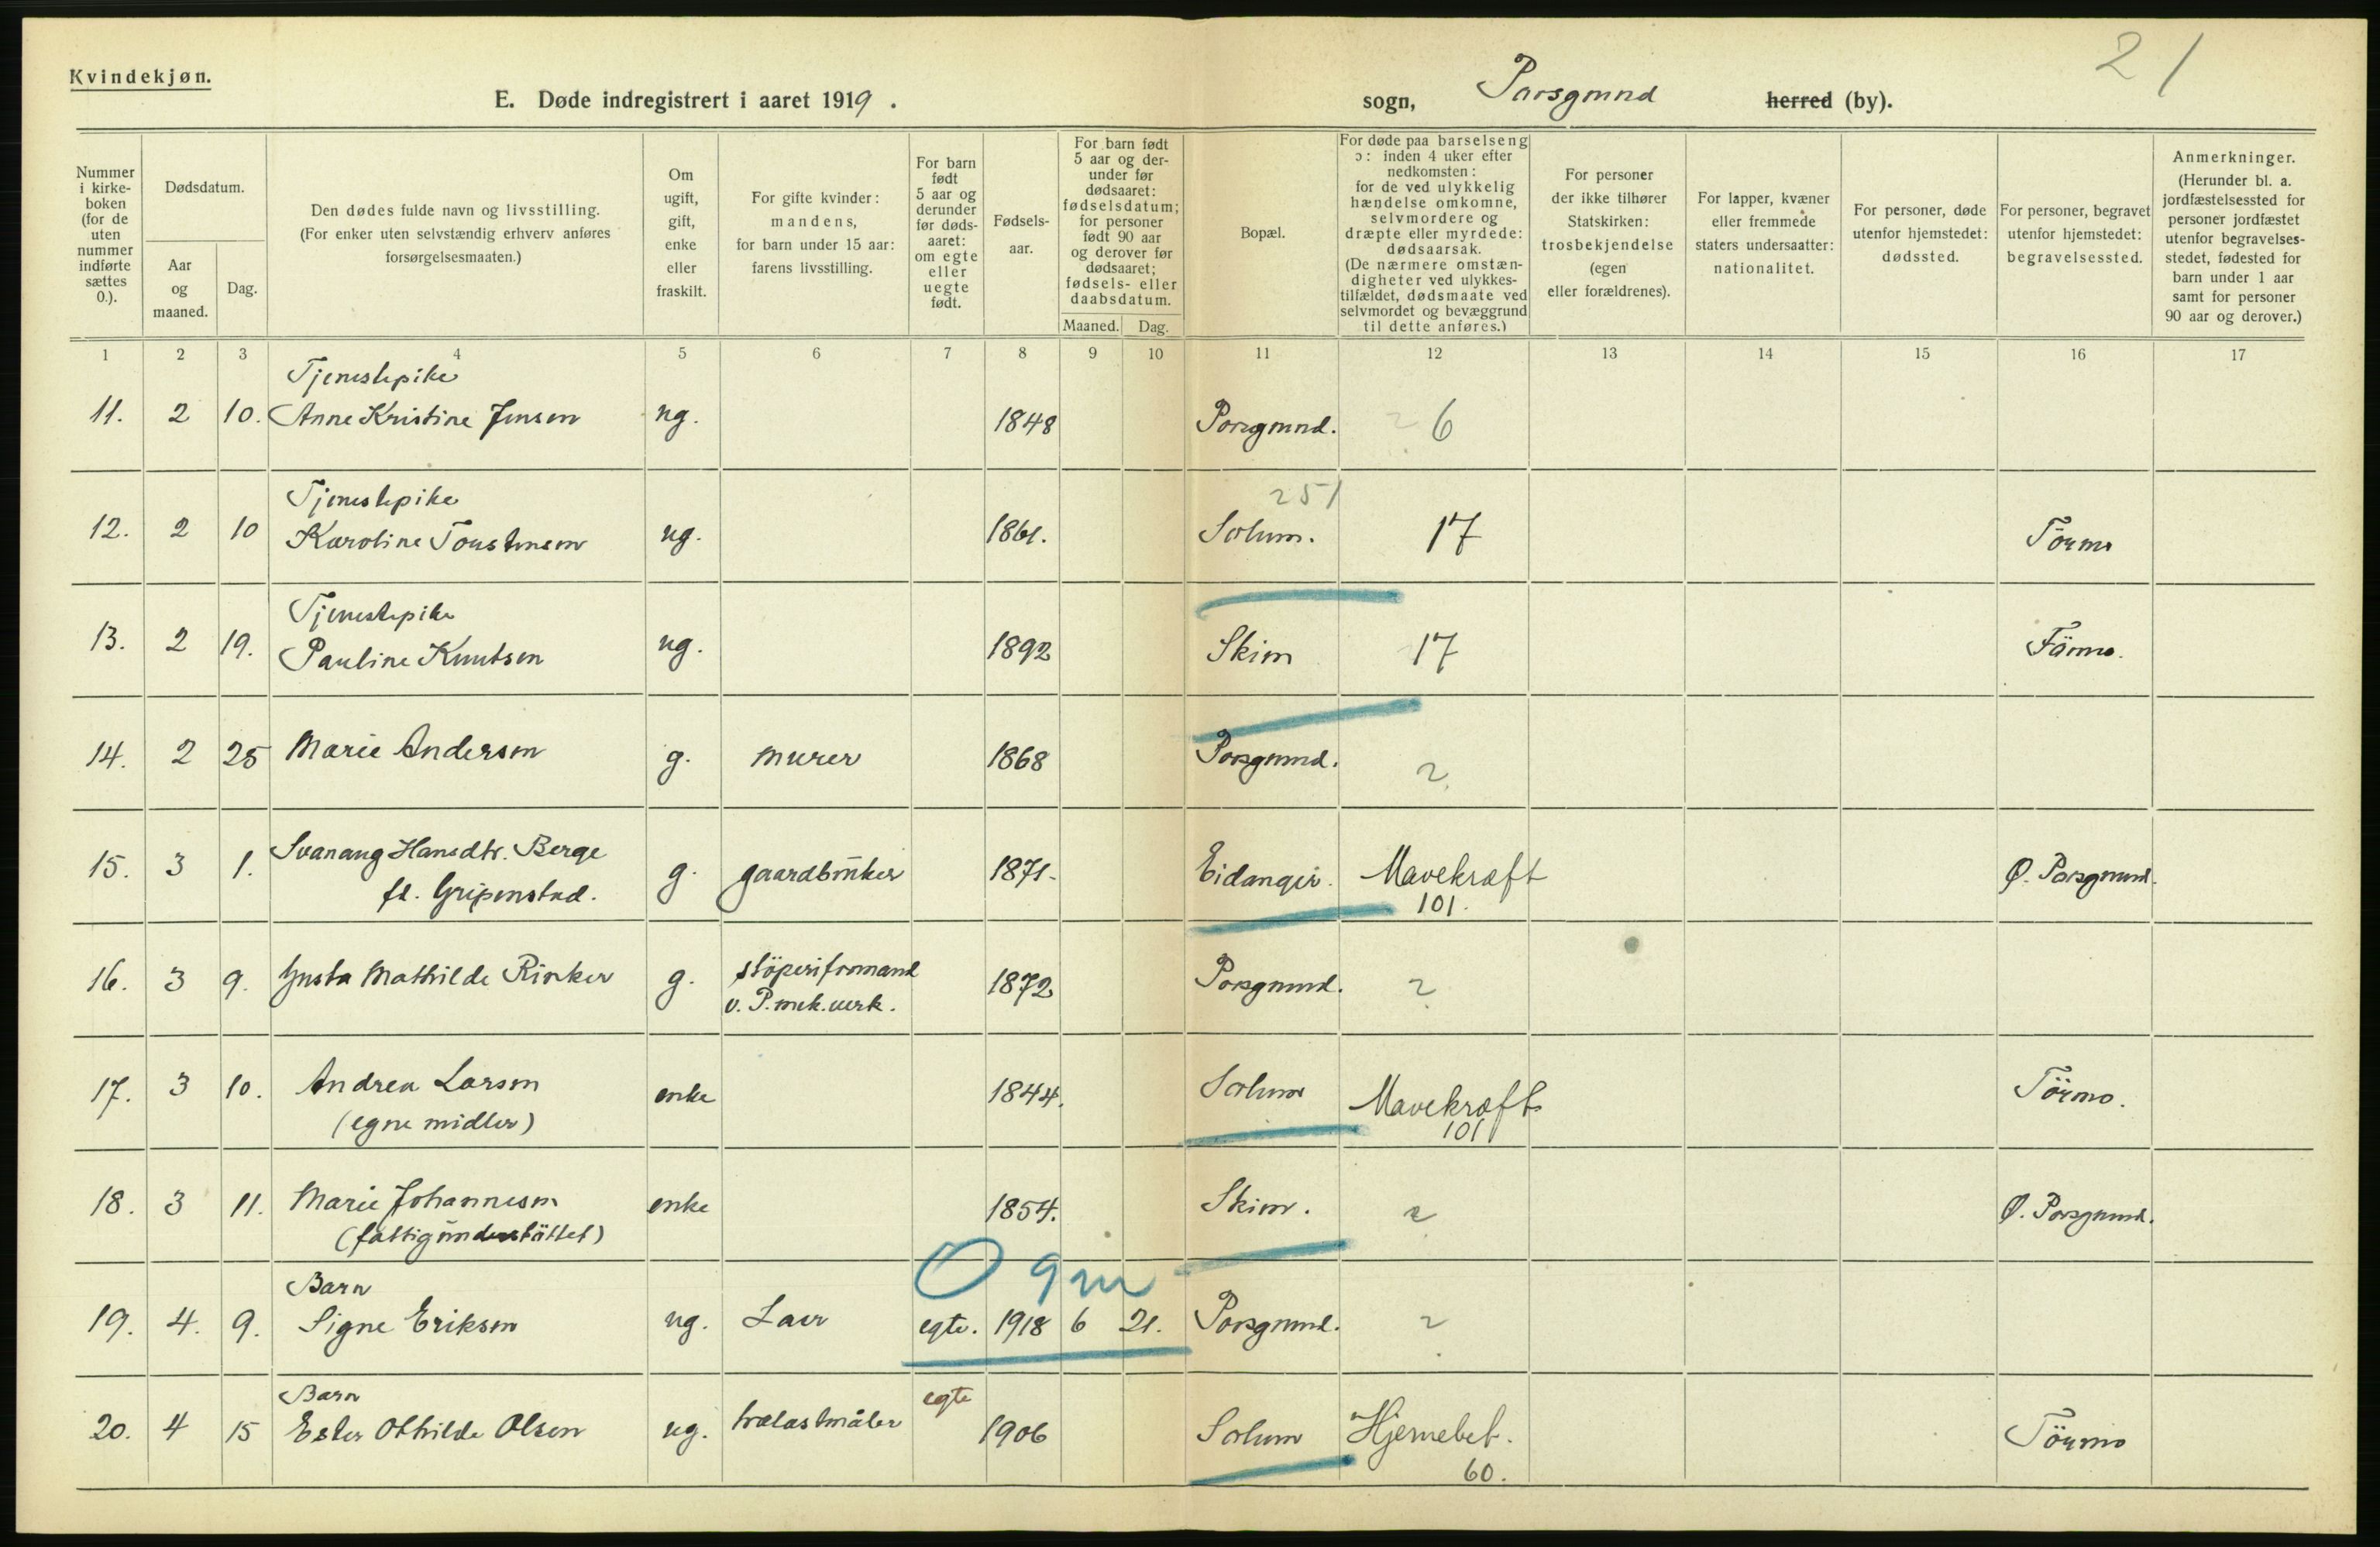 Kvindekjøn.
21
E. Døde indregistrert i aaret 1919.
sogn, Porsgrund herred (by).
Nummer i kirkeboken (for de uten nummer indførte sættes 0.).
Dødsdatum.
Aar og maaned.
Dag.
Den dødes fulde navn og livsstilling. (For enker uten selvstændig erhverv anføres forsørgelsesmaaten.)
Om ugift, gift, enke eller fraskilt.
For gifte kvinder: mandens, for barn under 15 aar: farens livsstilling.
For barn født 5 aar og derunder før dødsaaret: om egte eller uegte født.
Fødselsaar.
For barn født 5 aar og derunder før dødsaaret: fødselsdatum; for personer født 90 aar og derover før dødsaaret; fødsels- eller daabsdatum.
Maaned. Dag.
Bopæl.
For døde paa barselseng ɔ: inden 4 uker efter nedkomsten: for de ved ulykkelig hændelse omkomne, selvmordere og dræpte eller myrdede: dødsaarsak. (De nærmere omstændigheter ved ulykkestilfældet, dødsmaate ved selvmordet og bevæggrund til dette anføres.)
For personer der ikke tilhører Statskirken: trosbekjendelse (egen eller forældrenes).
For lapper, kvæner eller fremmede staters undersaatter: nationalitet.
For personer, døde utenfor hjemstedet: dødssted.
For personer, begravet utenfor hjemstedet: begravelsessted.
Anmerkninger. (Herunder bl. a. jordfæstelsessted for personer jordfæstet utenfor begravelsesstedet, fødested for barn under 1 aar samt for personer 90 aar og derover.)
1 2 3 4 5 6 7 8 9 10 11 12 13 14 15 16 17
Tjenestepike
11. 2 10. Anne Kristine Jensen ug. 1848 Porsgrund. 6
Tjenestepike 251
12. 2 10 Karoline Torstensen ug. 1861. Solum. 17
Tjenestepike
13. 2 19. Pauline Knutsen ug. 1892 Skien 17
14. 2 25 Marie Andersen g. murer 1868 Porsgrund. ?
15. 3 1. Svanaug Hansdtr. Berge g. gaardbruker 1871. Eidanger. Mavekræft Ø. Porsgrund.
fd. Gripenstad. 101.
16. 3 9. Gusta Mathilde Rinker g. støperiformand 1872 Porsgrund. ?
v. P. mek. verk.
17. 3 10. Andrea Larsen enke 1844. Solum Mavekræft
(egne midler) 101
18. 3 11. Marie Johannesen enke 1854. Skien. ? Ø. Porsgrund.
(fattigunderstøttet)
0 9 m
Barn
19. 4. 9. Signe Eriksen ug. egte. 1918 6 21. Porsgrund. ?
Barn egte
20. 4 15 Ester Othilde Olsen ug. trælastmåler 1906 Solum Hjernebet.
60.